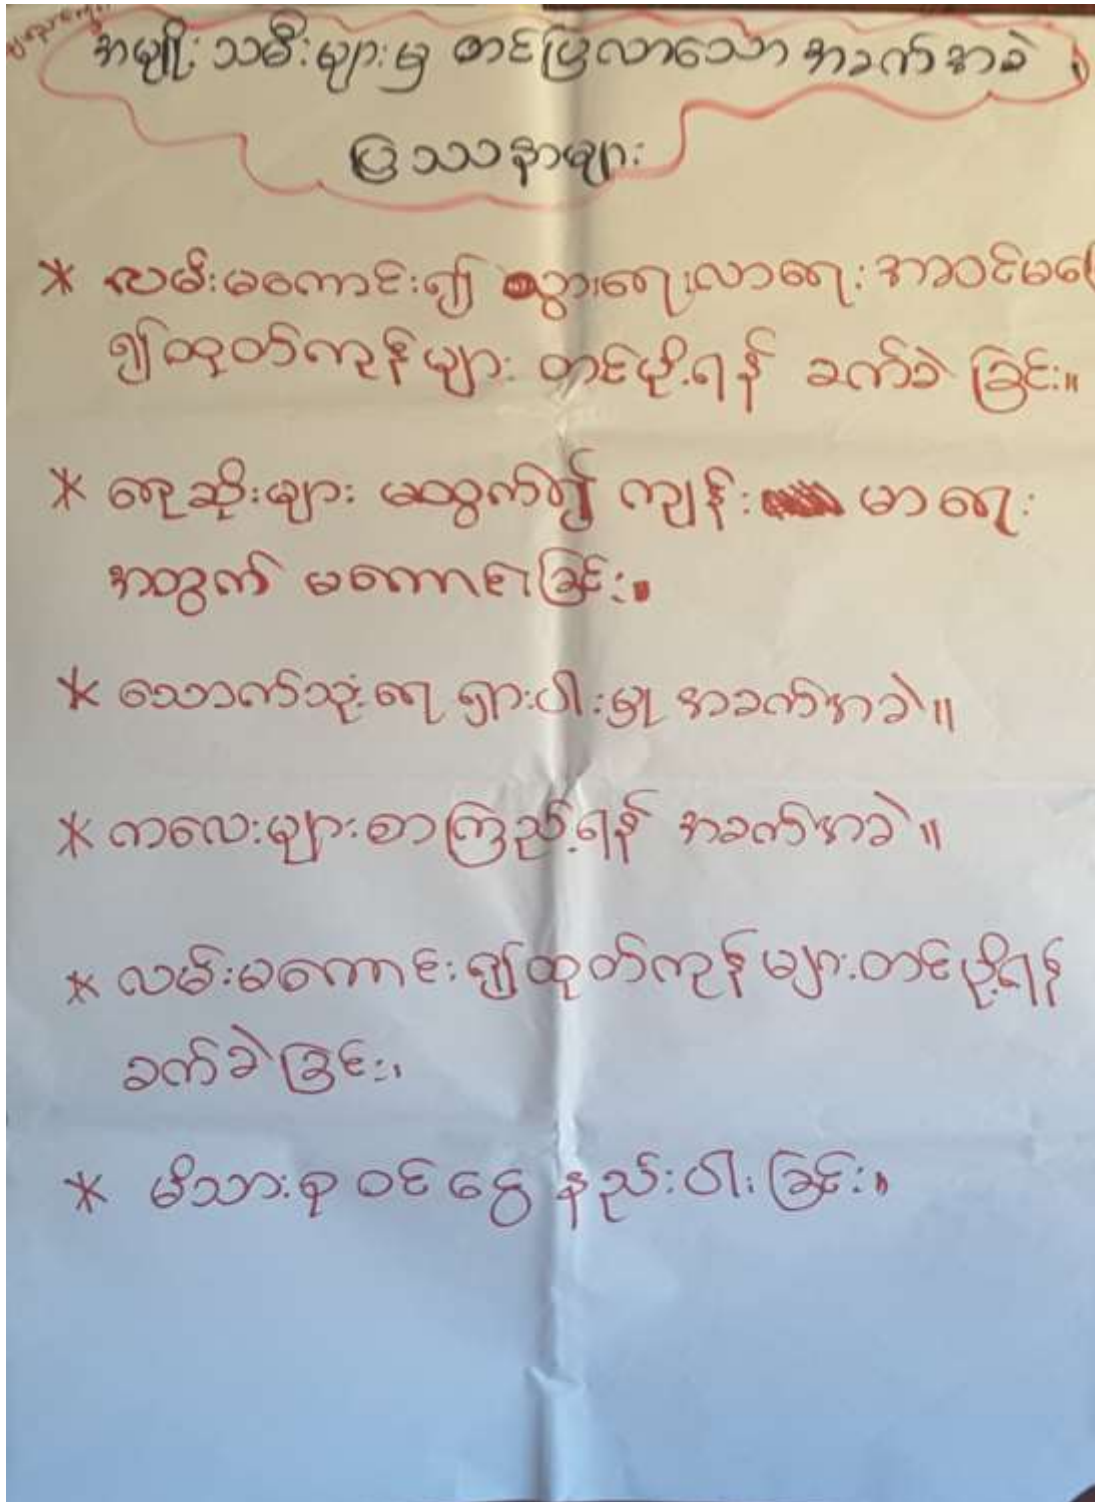 အမျိုးသမီးများမှ တင်ပြလာသော အခက်အခဲ
ပြဿနာများ
* လမ်းမကောင်း၍ သွားရေးလာရေး အဆင်မပြေ
၍ထုတ်ကုန်များ တင်ပို့ရန် ခက်ခဲခြင်း။
* ရေဆိုးများ မထွက်၍ ကျန်းမာရေး
အတွက် မကောင်းခြင်း။
* သောက်သုံးရေ ရှားပါးမှု အခက်အခဲ။
* ကလေးများစာကြည့်ရန် အခက်အခဲ။
* လမ်းမကောင်း၍ထုတ်ကုန်များတင်ပို့ရန်
ခက်ခဲခြင်း။
* မိသားစုဝင်ငွေ နည်းပါးခြင်း။